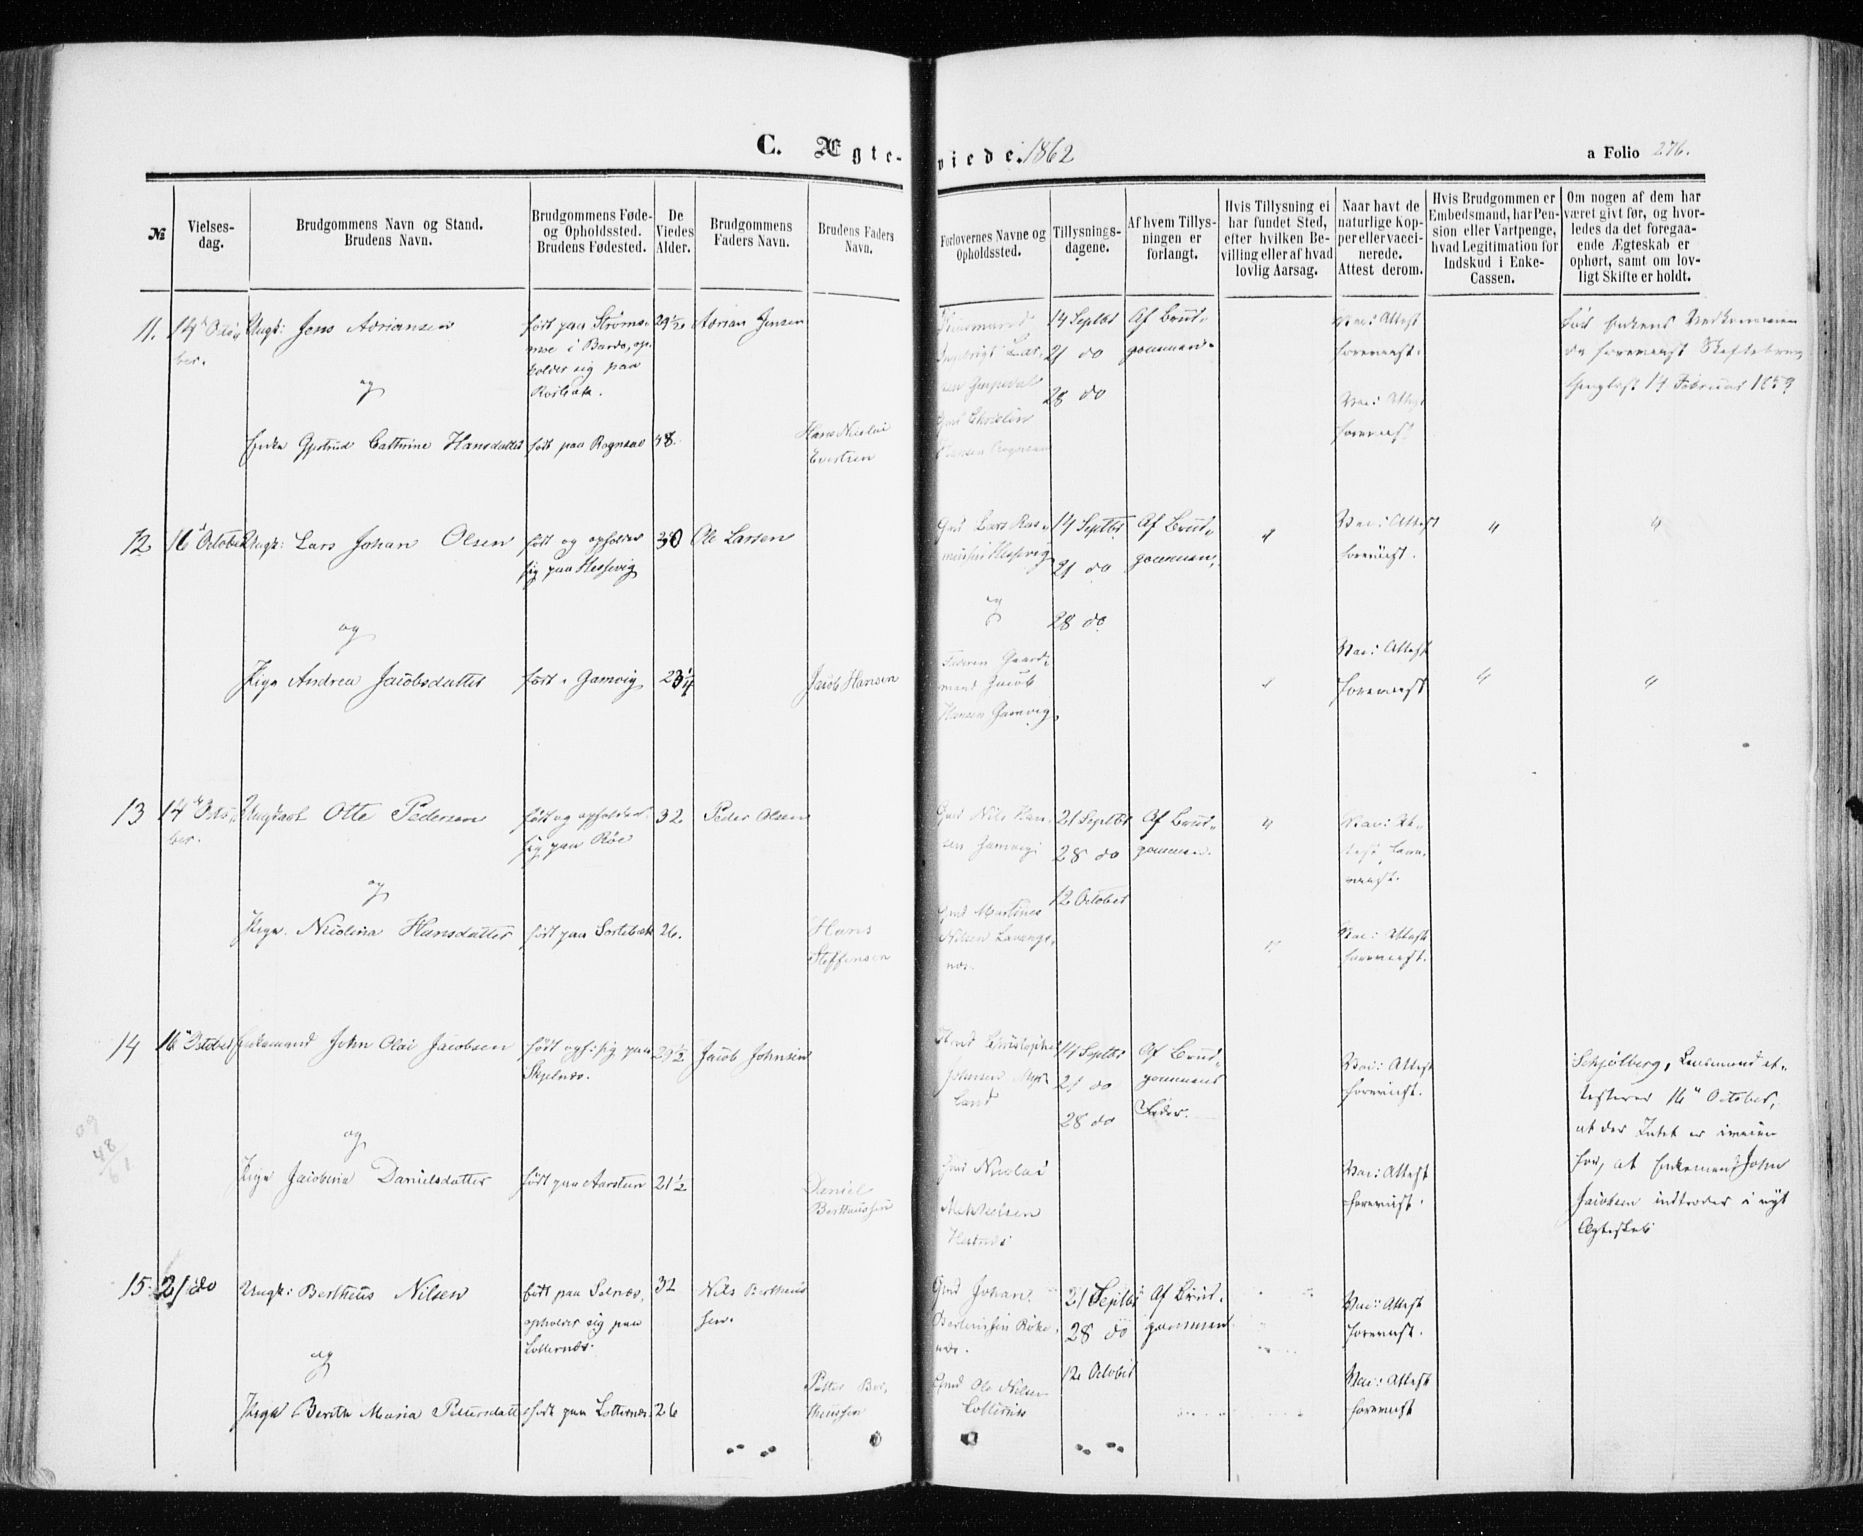 C. Ægteviede. 1862
a Folio 276.
№
Vielses-
dag.
Brudgommens Navn og Stand.
Brudens Navn.
Brudgommens Føde-
og Opholdssted.
Brudens Fødested.
De
Viedes
Alder.
Brudgommens
Faders Navn.
Brudens Faders
Navn.
Forlovernes Navne og
Opholdssted.
Tillysnings-
dagene.
Af hvem Tillys-
ningen er
forlangt.
Hvis Tillysning ei
har fundet Sted,
efter hvilken Be-
villing eller af hvad
lovlig Aarsag.
Naar havt de
naturlige Kop-
per eller vacci-
nerede.
Attest derom.
Hvis Brudgommen er
Embedsmand, har Pen-
sion eller Vartpenge,
hvad Legitimation for
Indskud i Enke-
Cassen.
Om nogen af dem har
været givt før, og hvor-
ledes da det foregaa-
ende Ægteskab er
ophørt, samt om lov-
ligt Skifte er holdt.
11.
14 Octo-
ber.
Ungk: Jens Adriansen
og
Enke Gjertrud Cathrine Hansdatter
født paa Strøms-
moe i Bardo, op-
holder sig paa
født paa Rognsaa
29 1/2
48.
Adrian Jensen
Hans Nicolai
14 Septbr
21 do
28 do
Af Brud-
gommen.
Vac: Attest
foreviist.
Vac: Attest
foreviist.
12
16 October
Ungk: Lars Johan Olsen
og
Pige Andrea Jacobsdatter
født og opholder
sig paa Hessevig
født i Gamvig
30
23 1/4
Ole Larsen
Jacob Hansen
Gmd Lars Ras-
mussen Hessevig
og
Faderen Gaard-
mand Jacob
Hansen Gamvig
14 Septbr
21 do
28 do
Af Brud-
gommen.
Vac: Attest
foreviist.
Vac: Attest
foreviist
13
14 Octo-
ber.
Ungkarl Otte Pedersen
og
Pige Nicolina Hansdatter
født og opholder
sig paa Røe
født paa Sortebæk
32
26.
Peder Olsen
Hans
Steffensen
Gmd Nils Han-
sen Gamvig
Gmd Martines
Nilsen Lavangs-
næs.
21 Septbr
28 do
12 October
Af Brud-
gommen.
Vac: At-
test fore-
viist.
Vac: Attest
foreviist.
14
16 October
Enkemand John Olai Jacobsen
og
Pige Jacobina Danielsdatter
født oph: sig paa
Skjelnæs.
født paa Aarsteen
29 1/2
21 1/2
Jacob Johnsen
Daniel
Bertheussen
Christopher
Johansen
Gmd Nicolai
Mikkelsen
14 Septbr
21 do
28 do
Af Brud-
gommens
Fader.
Vac: Attest
foreviist.
Vac: Attest
foreviist.
Schjølberg, Lensmand at-
testerer 16 October,
at der Intet er iveien
for, at Enkemand John
Jacobsen indtræder i nyt
Ægteskab
09
48
61
15.
21 do
Ungk: Bertheus Nilsen
og
Pige Berith Maria Pettersdatter
født paa Selnæs,
opholder sig paa
Lotternæs.
født paa Lotternæs.
32
26
Nils Bertheus-
sen.
Petter Ber-
theussen
Gmd Johan
Gmd Ole Nilsen
21 Septbr
28 do
12 October
Af Brud-
gommen
Vac: Attest
foreviist.
Vac: Attest
foreviist